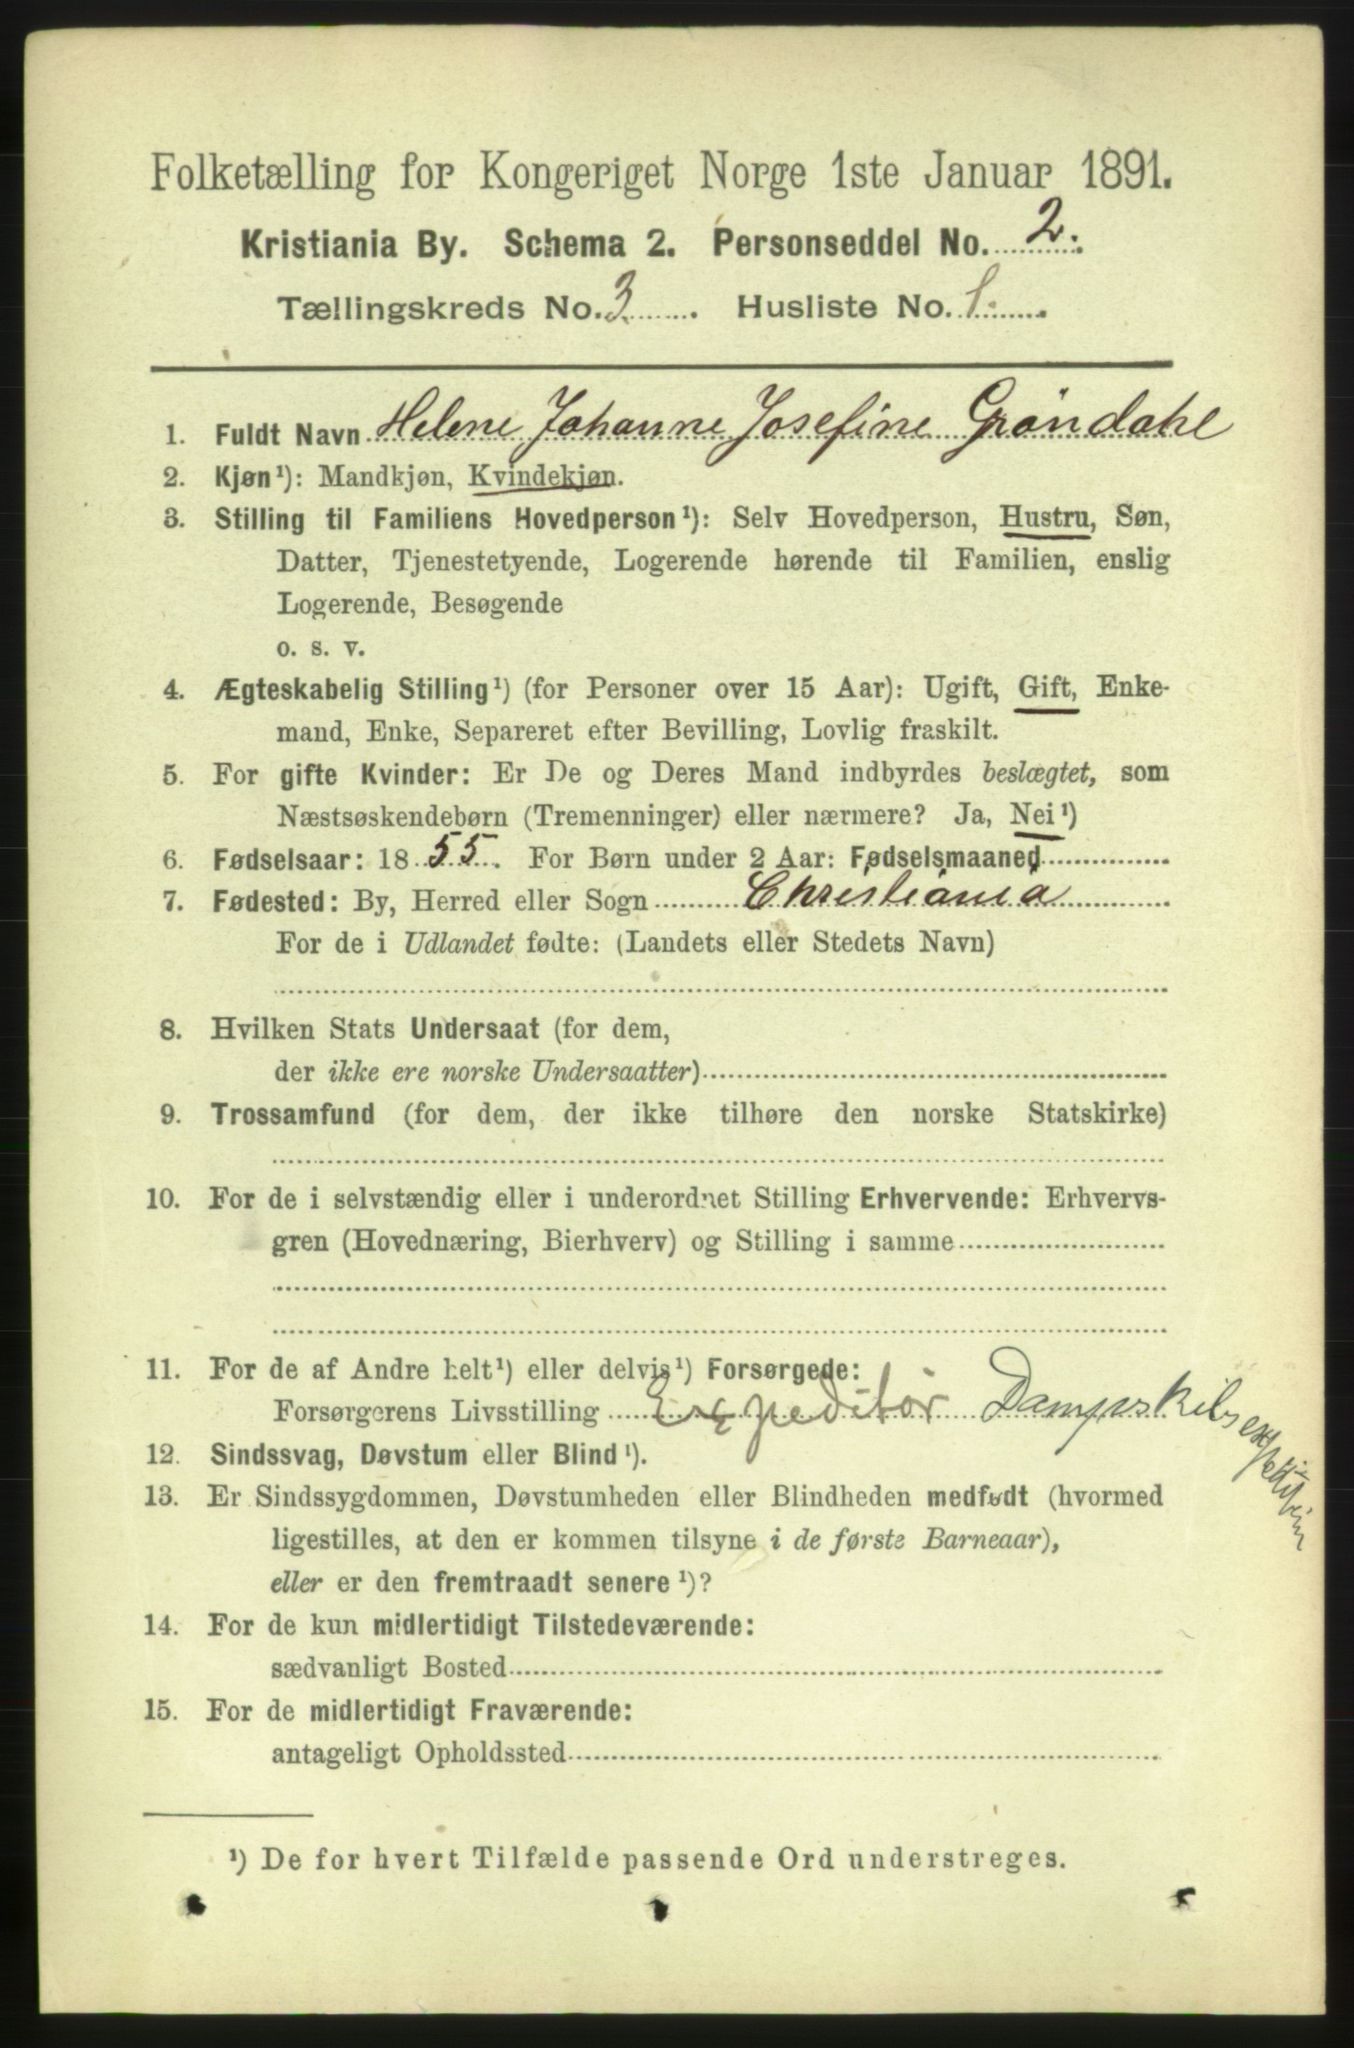 Folketælling for Kongeriget Norge 1ste Januar 1891.
Kristiania By. Schema 2. Personseddel No. 2.
Tællingskreds No. 3. Husliste No. 1.
1. Fuldt Navn Helene Johanne Josefine Gröndahl
2. Kjøn¹): Mandkjøn, Kvindekjøn.
3. Stilling til Familiens Hovedperson¹): Selv Hovedperson, Hustru, Søn,
Datter, Tjenestetyende, Logerende hørende til Familien, enslig
Logerende, Besøgende
o. s. v.
4. Ægteskabelig Stilling¹) (for Personer over 15 Aar): Ugift, Gift, Enke-
mand, Enke, Separeret efter Bevilling, Lovlig fraskilt.
5. For gifte Kvinder: Er De og Deres Mand indbyrdes beslægtet, som
Næstsøskendebørn (Tremenninger) eller nærmere? Ja, Nei¹)
6. Fødselsaar: 1855. For Børn under 2 Aar: Fødselsmaaned
7. Fødested: By, Herred eller Sogn Christiania
For de i Udlandet fødte: (Landets eller Stedets Navn)
8. Hvilken Stats Undersaat (for dem,
der ikke ere norske Undersaatter)
9. Trossamfund (for dem, der ikke tilhøre den norske Statskirke)
10. For de i selvstændig eller i underordnet Stilling Erhvervende: Erhvervs-
gren (Hovednæring, Bierhverv) og Stilling i samme
11. For de af Andre helt¹) eller delvis¹) Forsørgede:
Forsørgerens Livsstilling Expeditör Dampskibs
12. Sindssvag, Døvstum eller Blind¹).
13. Er Sindssygdommen, Døvstumheden eller Blindheden medfødt (hvormed
ligestilles, at den er kommen tilsyne i de første Barneaar),
eller er den fremtraadt senere¹)?
14. For de kun midlertidigt Tilstedeværende:
sædvanligt Bosted
15. For de midlertidigt Fraværende:
antageligt Opholdssted
¹) De for hvert Tilfælde passende Ord understreges.